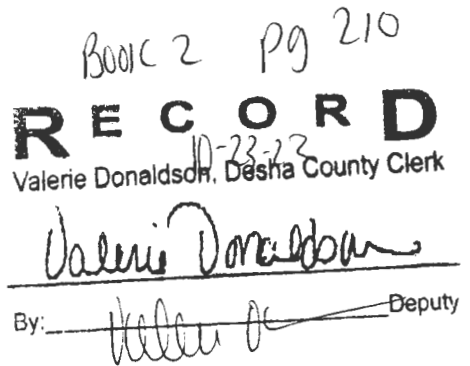 Book 2 pg 210
RECORD
10-23-23
Valerie Donaldson, Desha County Clerk
Valerie Donaldson
By: Deputy